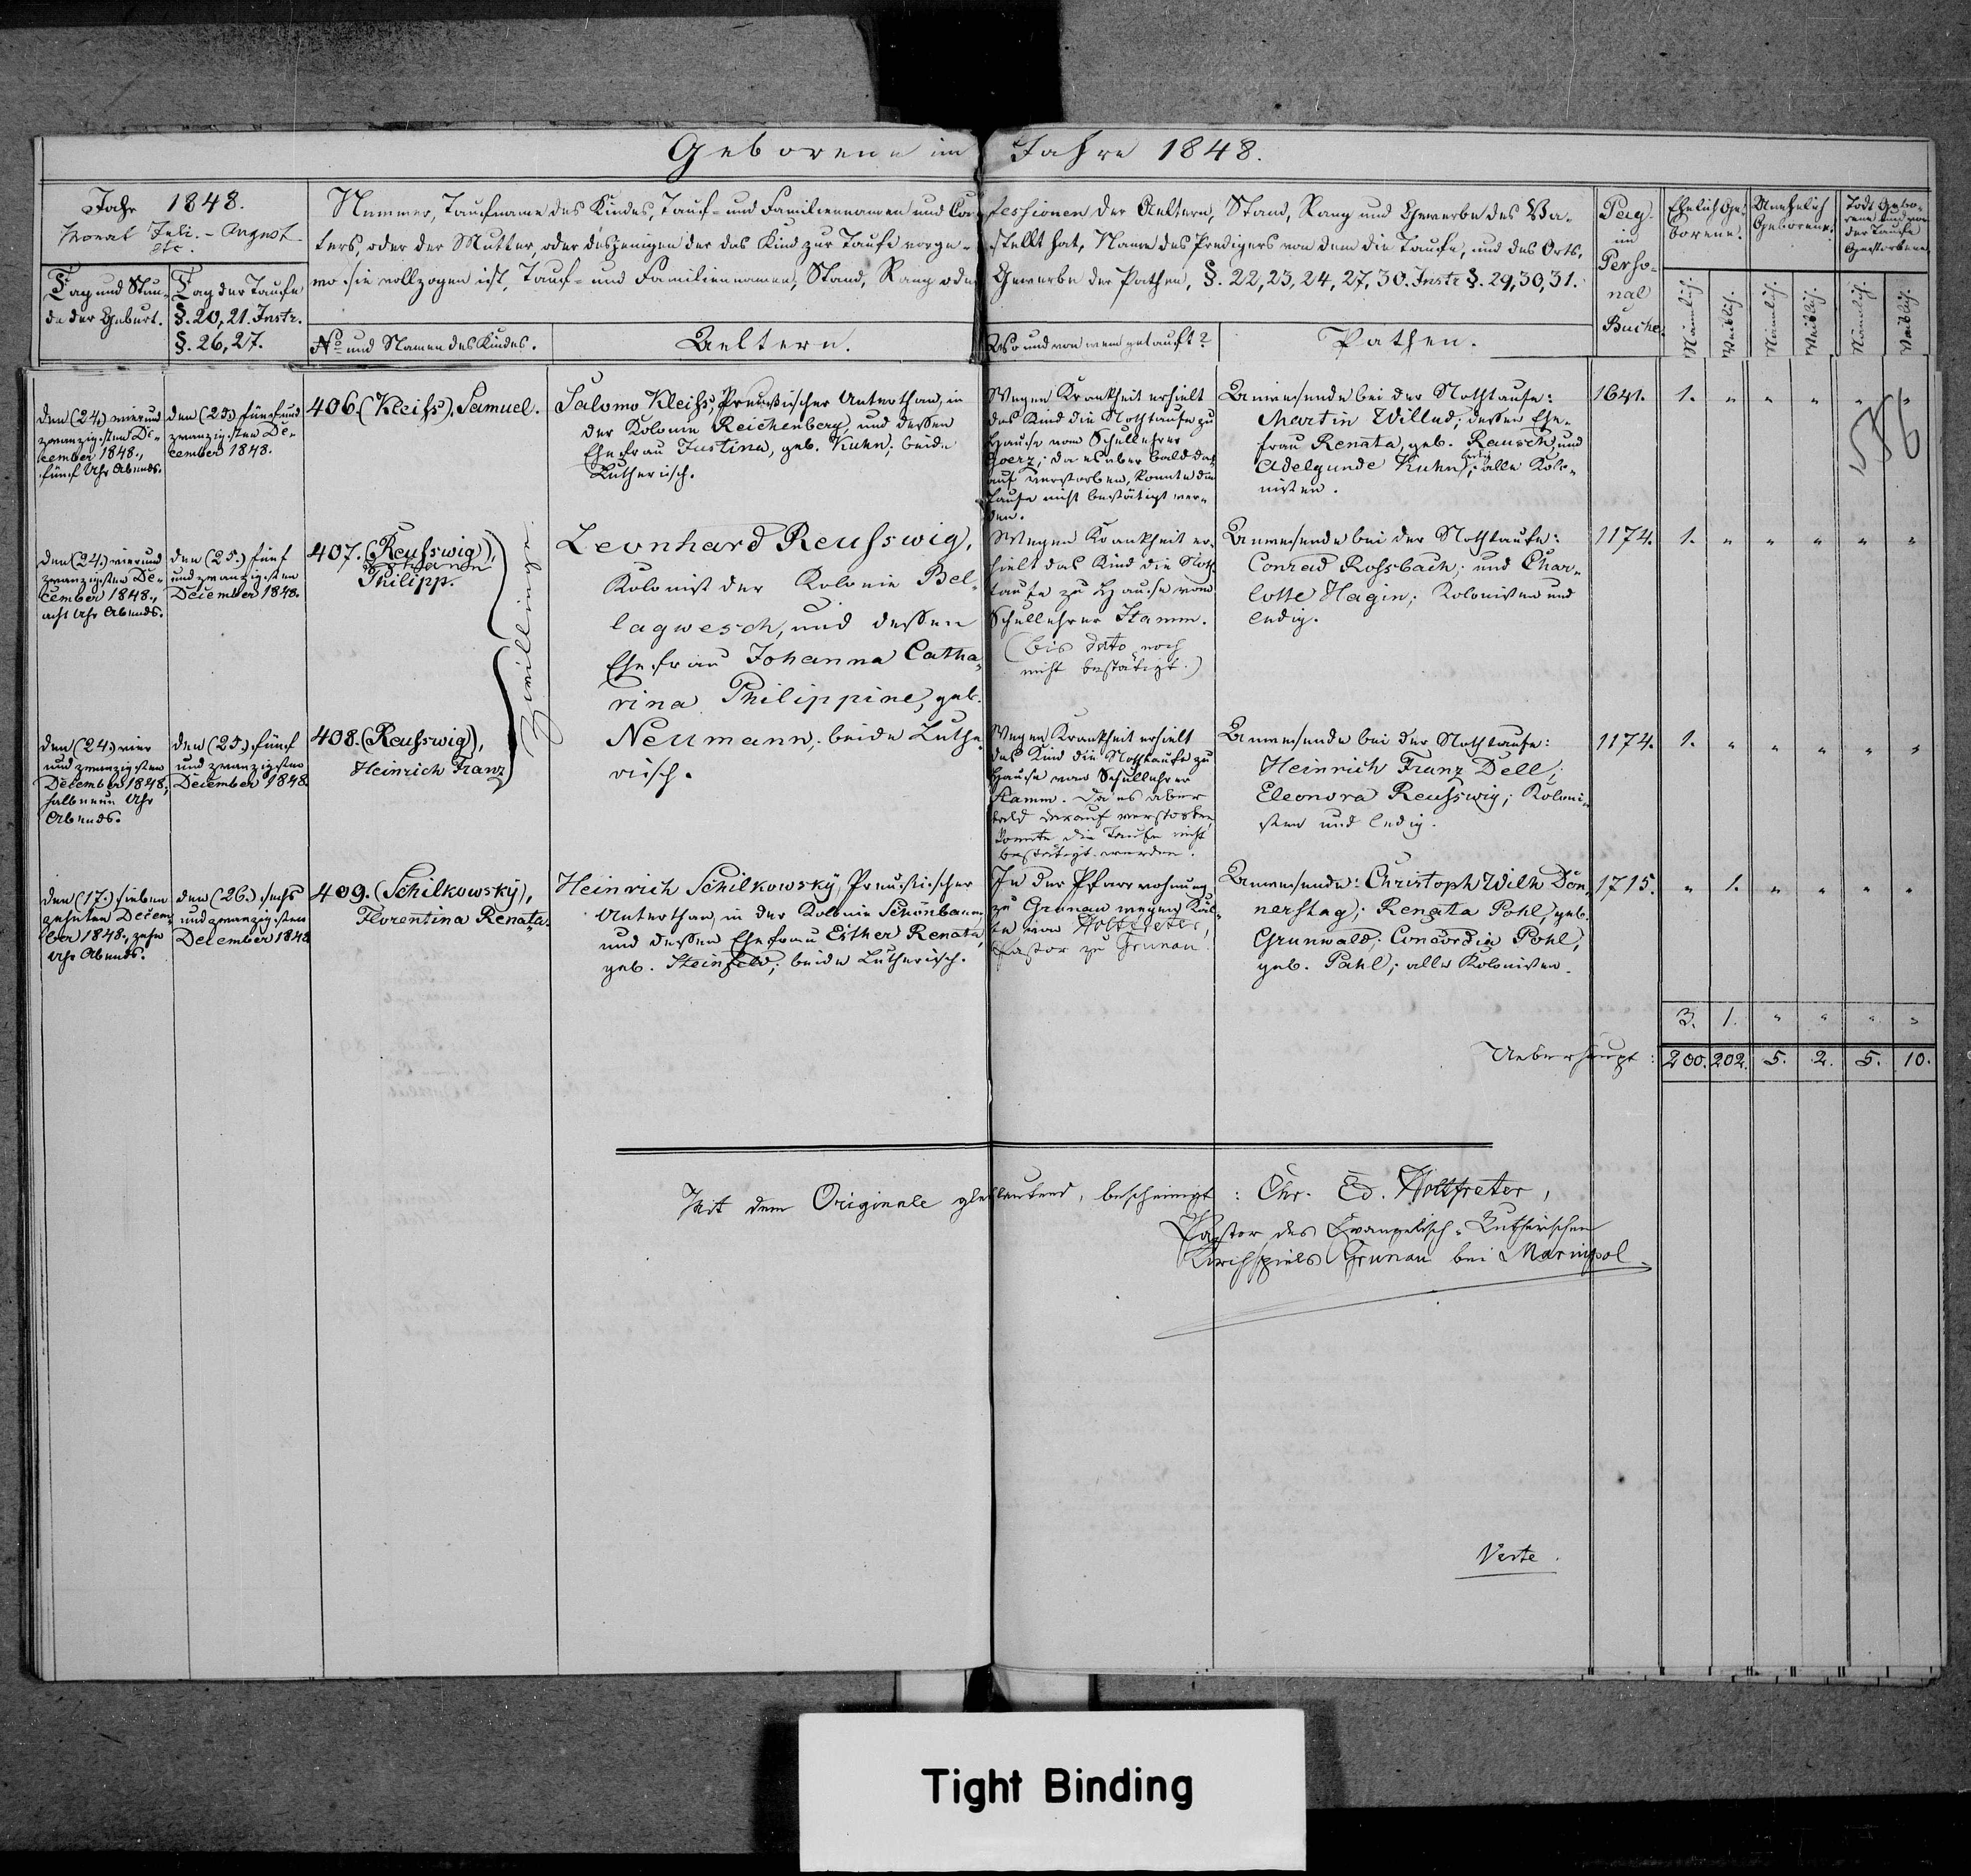 Geborene im Jahre 1848.
Jahr 1848.
Monat Juli. - August
etc.
Tag und Stun-
de der Geburt.
Tag der Taufe
§. 20, 21. Instr.
§. 26, 27.
Nummer, Taufname des Kindes, Tauf- und Familiennamen und Confessionen der Aeltern, Stand, Rang und Gewerbe des Va-
ters, oder der Mutter, oder desjenigen der das Kind zur Taufe vorge-stellt hat, Name des Predigers von dem die Taufe, und des Orts,
wo sie vollzogen ist, Tauf- und Familiennamen, Stand, Rang oder Gewerbe der Pathen, §. 22, 23, 24, 27, 30. Instr §. 29, 30, 31.
No und Namen des Kindes.
Aeltern.
Wo und von wem getauft?
Pathen.
Pag.
im
Perso-
nal
Buche.
Ehelich Ge-
borene.
Unehelich
Geborene.
Todt Gebo-
rene und vor
der Taufe
Gestorbene.
Männlich.
Weiblich.
Männlich.
Weiblich.
Männlich.
Weiblich.
den (24.) vier und
zwanzigsten De-
cember 1848.,
fünf Uhr Abends.
den (25.) fünf und
zwanzigsten De-
cember 1848.
406. (Kleiss), Samuel.
Salomo Kleiss, Preussischer Unterthan, in
der Kolonie Reichenberg, und dessen
Ehefrau Justina, geb. Kuhn; beide
Lutherisch.
Wegen Krankheit erhielt
das Kind die Nothtaufe zu
Hause vom Schullehrer
Goerz; da es aber bald dar-
auf verstorben, konnte die
Taufe nicht bestätigt wer-
den.
Anwesende bei der Nothtaufe:
Martin Willud; dessen Ehe-
frau Renata, geb. Rausch; und
Adelgunde Kuhn, ledig; alle Kolo-
nisten.
1641.
1. " " " " "
den (24.) vier und
zwanzigsten De-
cember 1848.,
acht Uhr Abends.
den (25.) fünf
und zwanzigsten
December 1848.
407. (Reusswig),
Johann
Philipp.
Zwillinge
Leonhard Reusswig,
Kolonist der Kolonie Bel-
lagwesch, und dessen
Ehefrau Johanna Catha-
rina Philippine, geb.
Neumann; beide Luthe-
risch.
Wegen Krankheit er-
hielt das Kind die Noth-
taufe zu Hause vom
Schullehrer Stamm.
(bis dato noch
nicht bestätigt.)
Anwesende bei der Nothtaufe:
Conrad Rossbach; und Char-
lotte Hagin; Kolonisten und
ledig.
1174.
1. " " " " "
den (24.) vier
und zwanzigsten
December 1848.,
halb neun Uhr
Abends.
den (25.) fünf
und zwanzigsten
December 1848.
408. (Reusswig),
Heinrich Franz
Wegen Krankheit erhielt
das Kind die Nothtaufe zu
Hause vom Schullehrer
Stamm. Da es aber
bald darauf verstorben,
konnte die Taufe nicht
bestätigt werden.
Anwesende bei der Nothtaufe:
Heinrich Franz Dell;
Eleonora Reusswig; Koloni-
sten und ledig.
1174.
1. " " " " "
den (17.) sieben
zehnten Decem-
ber 1848., zehn
Uhr Abends.
den (26.) sechs
und zwanzigsten
December 1848
409. (Schilkowsky),
Florentina Renata.
Heinrich Schilkowsky, Preussischer
Unterthan, in der Kolonie Schönbaum,
und dessen Ehefrau Esther Renata,
geb. Steinfeld; beide Lutherisch.
In der Pfarrwohnung
zu Grunau wegen Käl-
te von Holtfreter,
Pastor zu Grunau.
Anwesende: Christoph Wilh Don-
nerstag; Renata Pohl, geb.
Grunwald; Concordia Pohl,
geb. Pahl; alle Kolonisten.
1715.
" 1. " " " "
3. 1. " " " "
Ueberhaupt: 200. 202. 5. 2. 5. 10.
Mit dem Originale gleichlautend, bescheinigt: Chr. Ed. Holtfreter,
Pastor des Evangelisch-Lutherischen
Kirchspiels Grunau bei Mariupol.
Verte.
Tight Binding